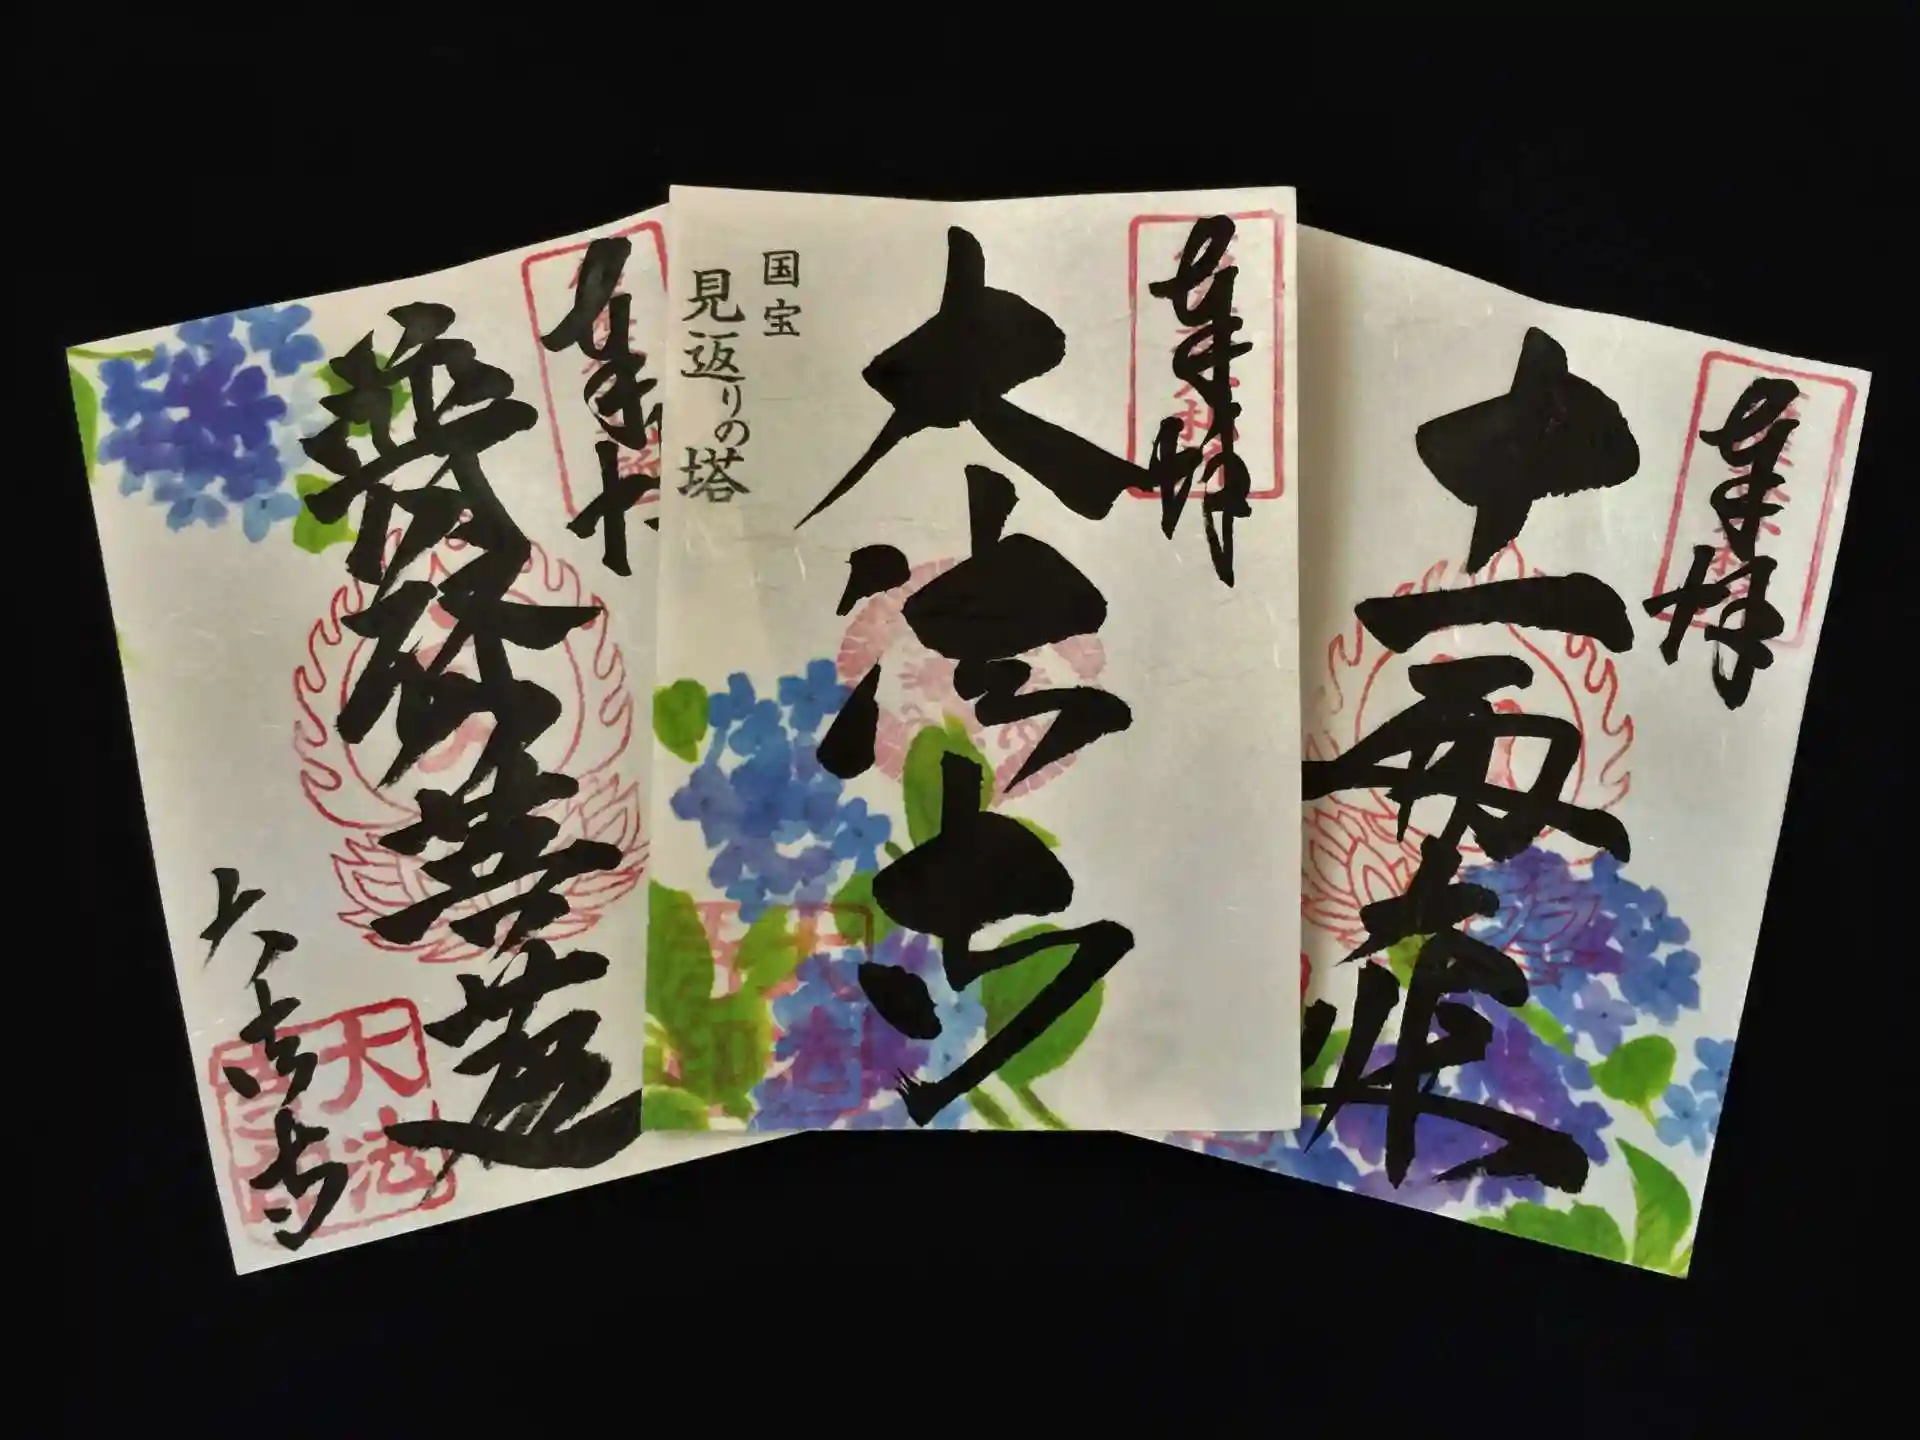 奉拝
十一面
奉拝
大法寺
国宝
見返りの塔
奉拝
普賢菩薩
大法寺